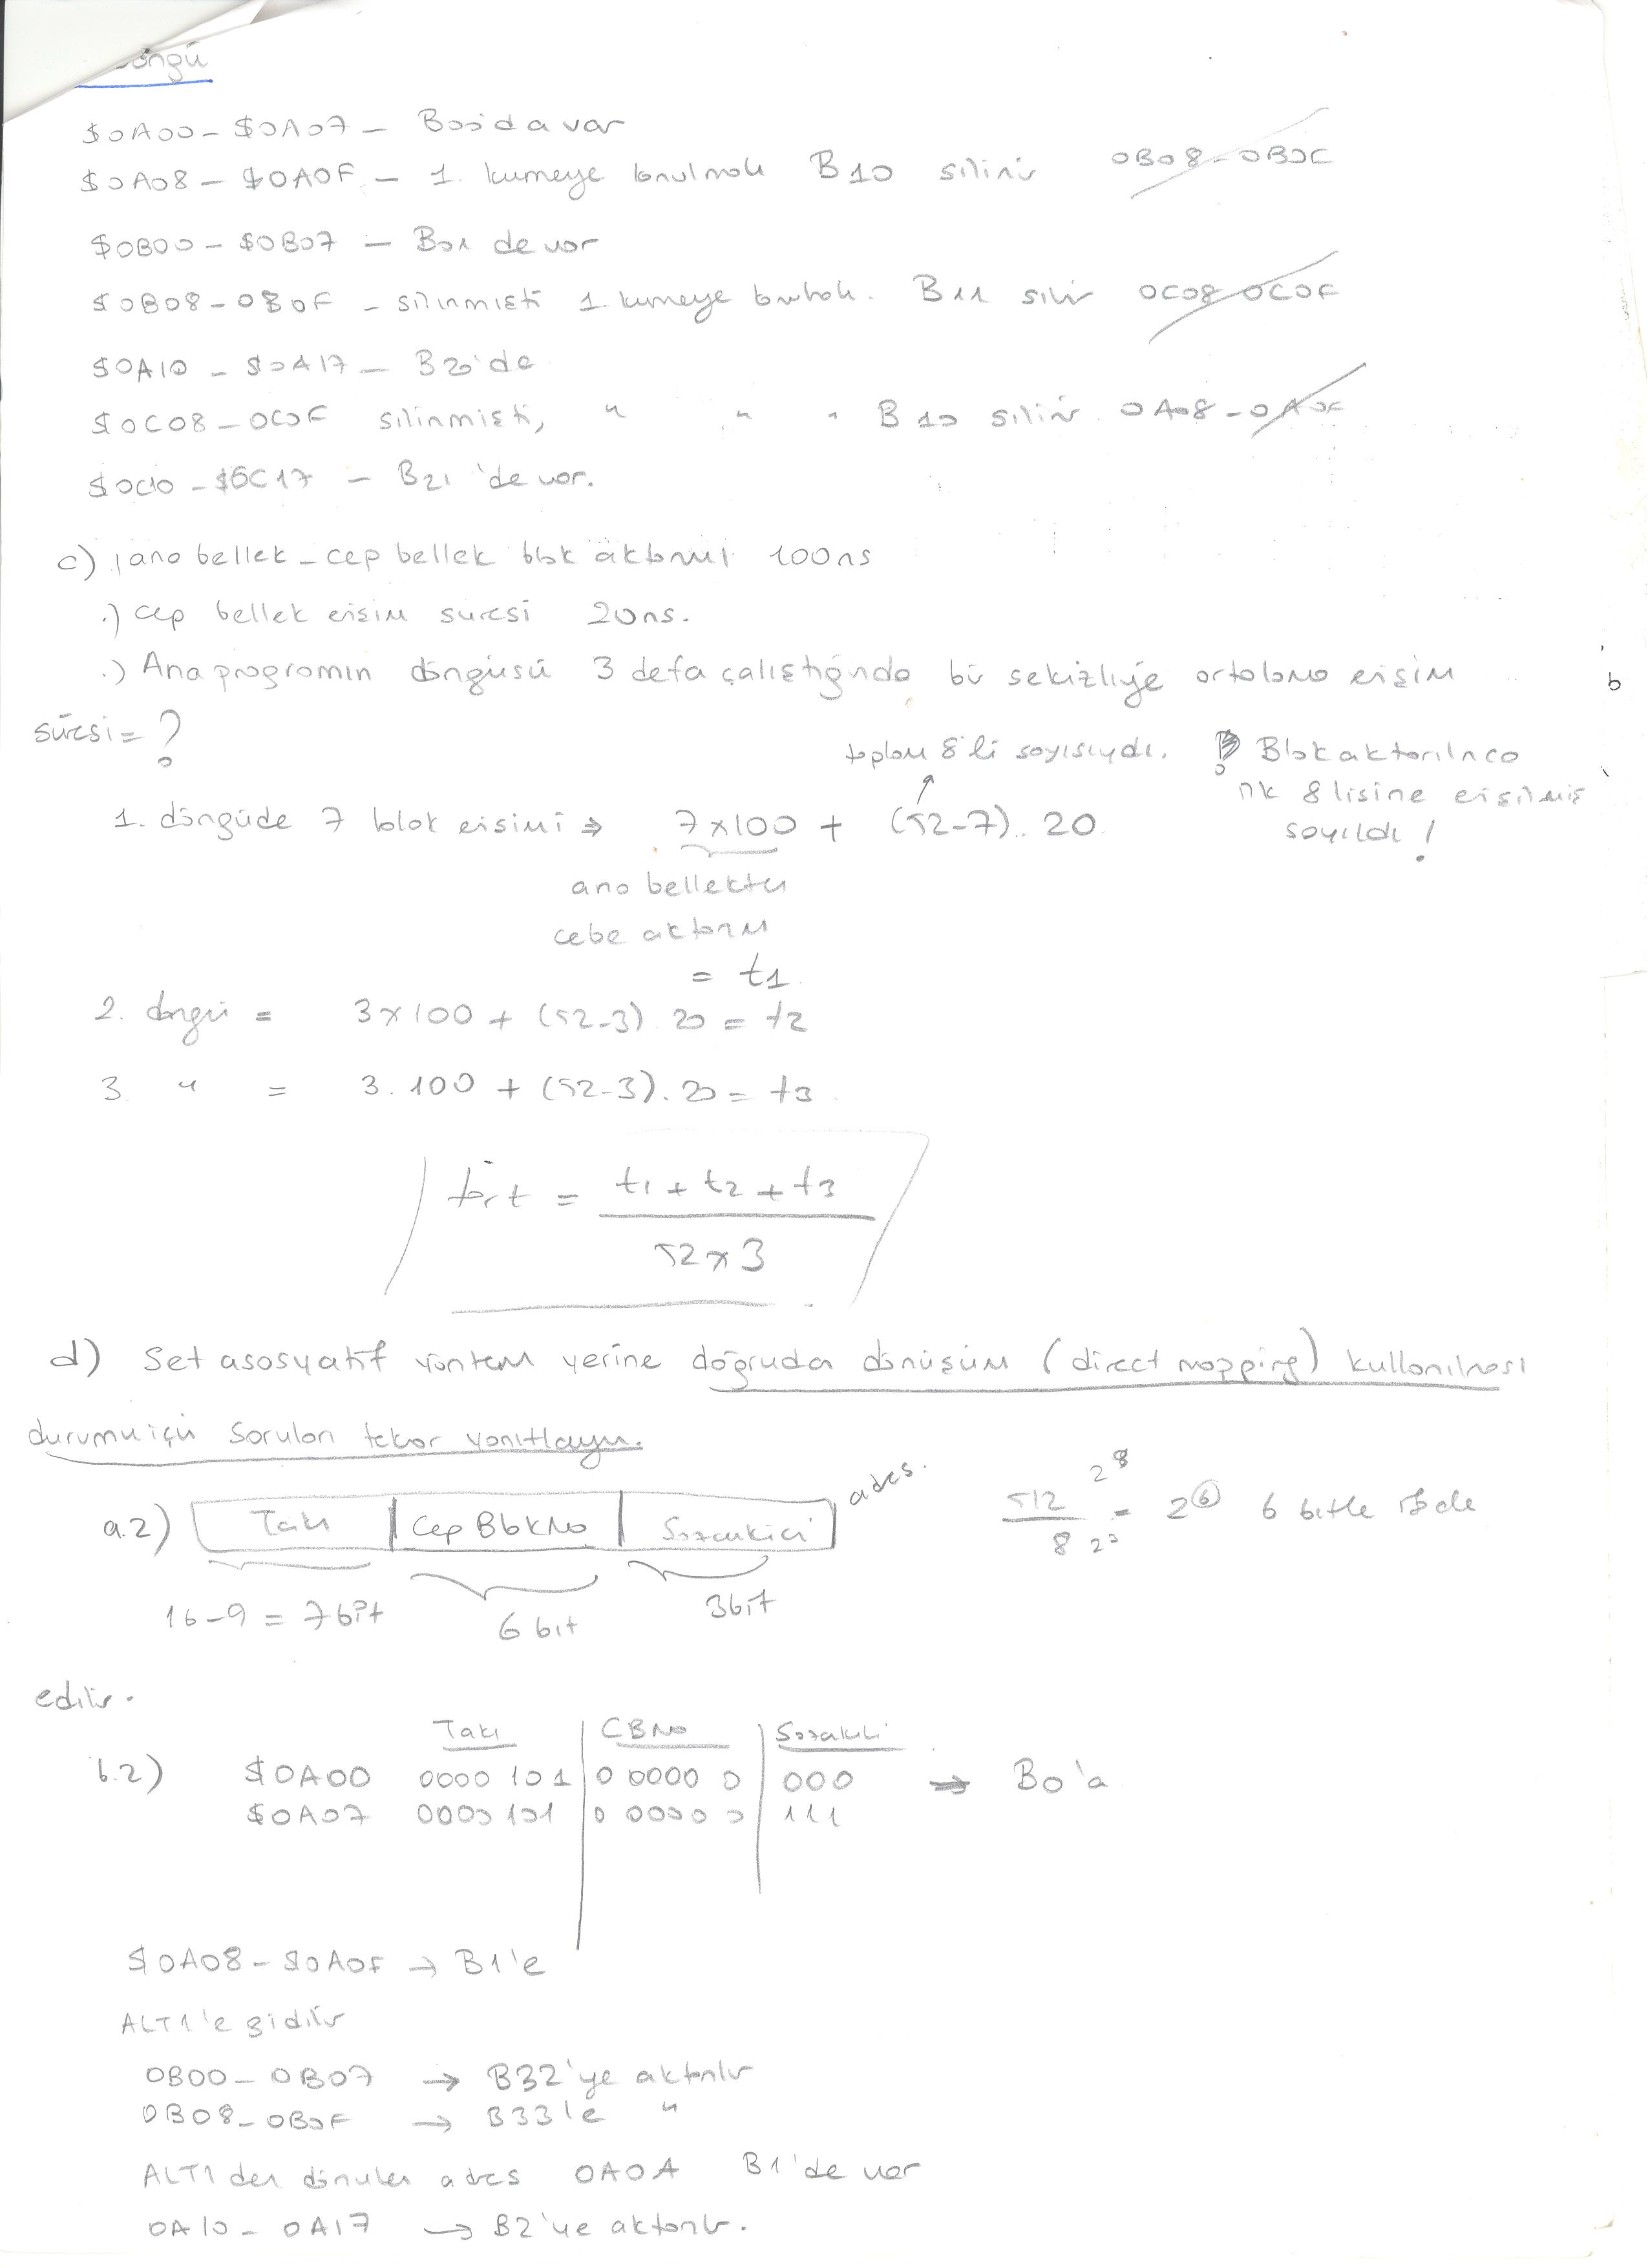 öngü
$0A00 - $0A07 - B00'da var
$0A08 - $0A0F - 1. kumeye konulmalı B10 silinir 0B08-0B0F
$0B00 - $0B07 - B01 de var
$0B08-0B0F - silinmişti 1. kumeye konulmalı. B11 silinir 0C08 0C0F
$0A10 - $0A17 - B20'de
$0C08-0C0F silinmişti, " " " B10 silinir. 0A08-0A0F
$0C10 - $0C17 - B21 'de var.
c) ana bellek - cep bellek blok aktarımı 100ns
.) cep bellek erişim süresi 20ns.
.) Ana programın döngüsü 3 defa çalıştığında bir sekizliye ortalama erişim
süresi = ?
toplam 8'li sayısıydı. ? Blok aktarılınca
ilk 8 lisine erişilmiş
1. döngüde 7 blok erişimi ⇒ 7x100 + (52-7) . 20
sayıldı !
ana bellekten
cebe aktarım
= t1
2. döngü = 3x100 + (52-3) 20 = t2
3. " = 3.100 + (52-3). 20 = t3
tort = t1 + t2 + t3
52x3
d) Set asosyatif yöntem yerine doğrudan dönüşüm (direct mapping) kullanılması
durumu için soruları tekrar yanıtlayın.
a.2) Takı | Cep Blk No | Sözcük içi adres.
512 2⁸ / 8 2³ = 2⁶ 6 bitle ifade
16-9 = 7bit 6 bit 3bit
edilir.
Takı CBNo Sözcük içi
b.2) $0A00 0000 101 0 0000 0 000 → B0'a
$0A07 0000 101 0 0000 0 111
$0A08 - $0A0F → B1'e
ALT1'e gidilir
0B00 - 0B07 → B32'ye aktarılır
0B08 - 0B0F → B33'e "
ALT1 den dönülen adres 0A0A B1'de var
0A10 - 0A17 → B2'ye aktarılır.
b